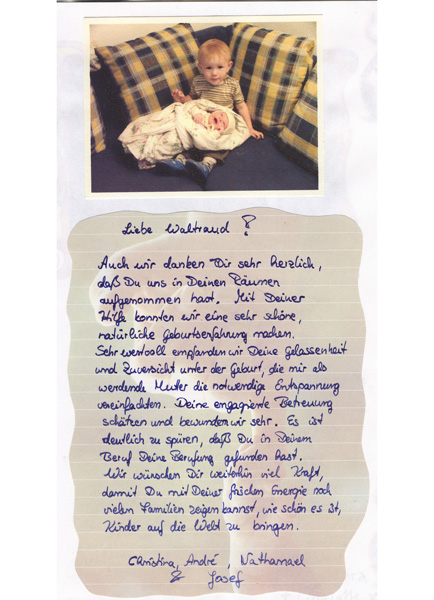 Liebe Waltraud !
Auch wir danken Dir sehr herzlich,
daß Du uns in Deinen Räumen
aufgenommen hast. Mit Deiner
Hilfe konnten wir eine sehr schöne,
natürliche Geburtserfahrung machen.
Sehr wertvoll empfanden wir Deine Gelassenheit
und Zuversicht unter der Geburt, die mir als
werdende Mutter die notwendige Entspannung
vereinfachten. Deine engagierte Betreuung
schätzen und bewundern wir sehr. Es ist
deutlich zu spüren, daß Du in Deinem
Beruf Deine Berufung gefunden hast.
Wir wünschen Dir weiterhin viel Kraft,
damit Du mit Deiner frischen Energie noch
vielen Familien zeigen kannst, wie schön es ist,
Kinder auf die Welt zu bringen.
Christina, André, Nathanael
& Josef